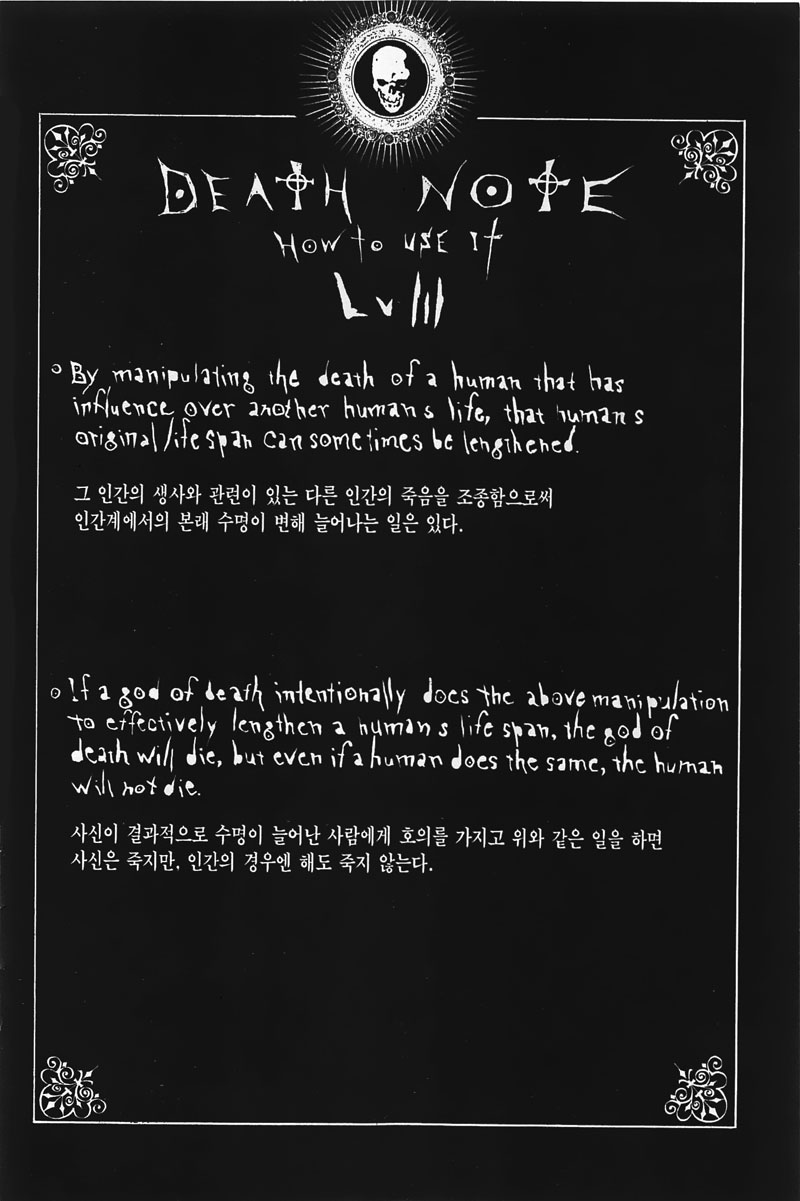 DEATH NOTE
HOW TO USE IT
LVIII
By manipulating the death of a human that has
influence over another human s life, that human s
original life span can sometimes be lengthened.
그 인간의 생사와 관련이 있는 다른 인간의 죽음을 조종함으로써
인간계에서의 본래 수명이 변해 늘어나는 일은 있다.
If a god of death intentionally does the above manipulation
to effectively lengthen a human s life span, the god of
death will die, but even if a human does the same, the human
will not die.
사신이 결과적으로 수명이 늘어난 사람에게 호의를 가지고 위와 같은 일을 하면
사신은 죽지만, 인간의 경우엔 해도 죽지 않는다.